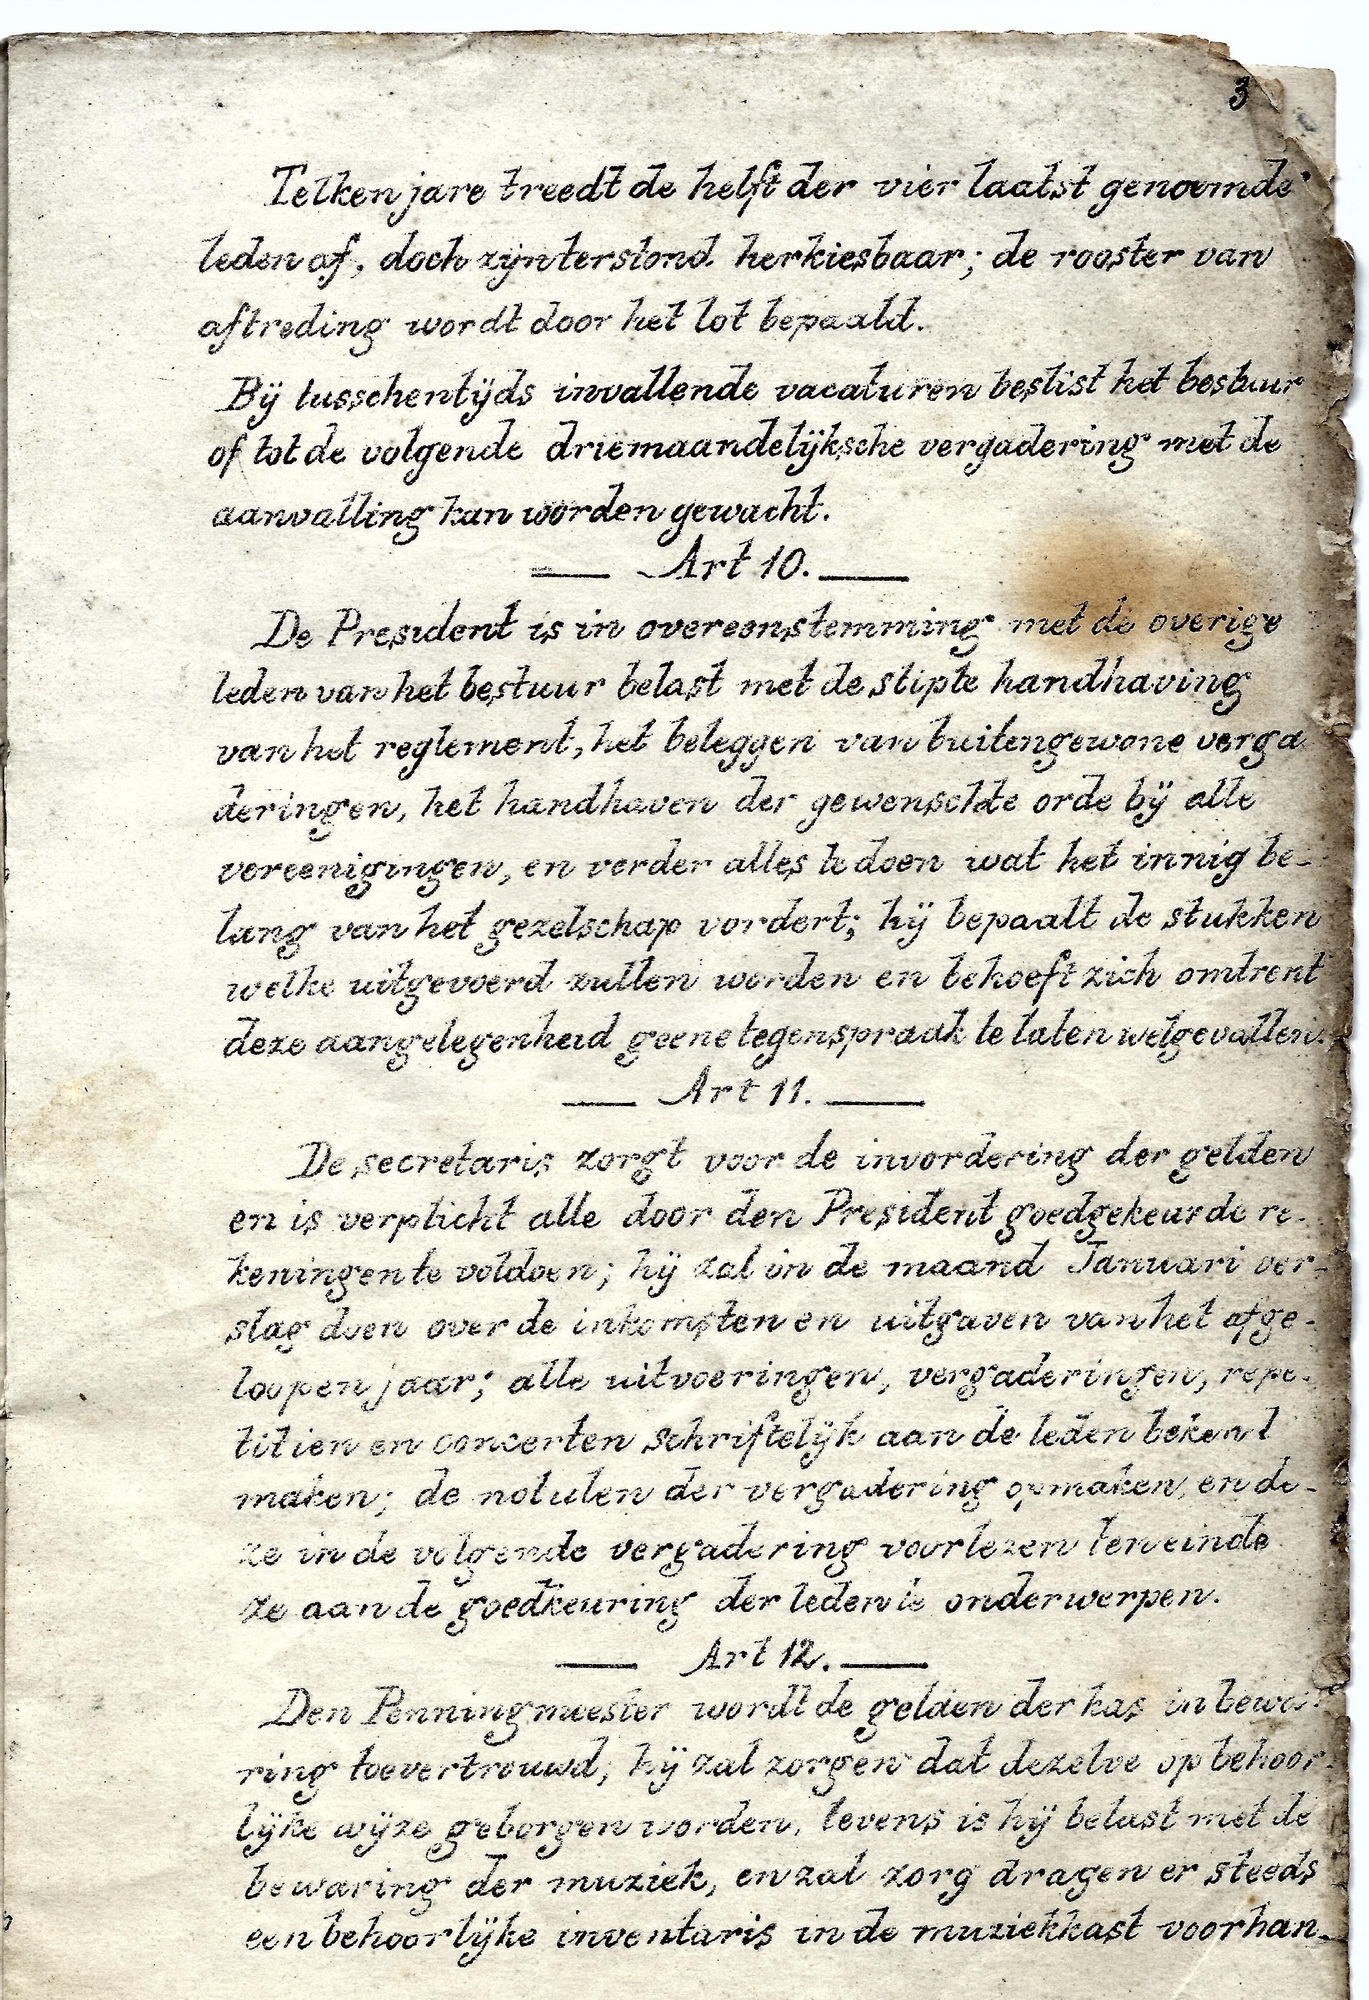 3
Telken jare treedt de helft der vier laatst genoemde
leden af, doch zijn terstond herkiesbaar; de rooster van
aftreding wordt door het lot bepaald.
Bij tusschentijds invallende vacaturen beslist het bestuur
of tot de volgende driemaandelijksche vergadering met de
aanvalling kan worden gewacht.
Art 10.
De President is in overeenstemming met de overige
leden van het bestuur belast met de stipte handhaving
van het reglement, het beleggen van buitengewone verga
deringen, het handhaven der gewenschte orde bij alle
vereenigingen, en verder alles te doen wat het innig be-
lang van het gezelschap vordert; hij bepaalt de stukken
welke uitgevoerd zullen worden en behoeft zich omtrent
deze aangelegenheid geene tegenspraak te laten welgevallen.
Art 11.
De secretaris zorgt voor de invordering der gelden
en is verplicht alle door den President goedgekeurde re-
keningen te voldoen; hij zal in de maand Januari ver-
slag doen over de inkomsten en uitgaven van het afge-
loopen jaar; alle uitvoeringen, vergaderingen, repe-
titien en concerten schriftelijk aan de leden bekent
maken; de notulen der vergadering opmaken, en de-
ze in de volgende vergadering voorlezen ten einde
ze aan de goedkeuring der leden te onderwerpen.
Art 12.
Den Penningmeester wordt de gelden der kas in bewa-
ring toevertrouwd, hij zal zorgen dat dezelve op behoor-
lijke wijze geborgen worden, tevens is hij belast met de
bewaring der muziek, en zal zorg dragen er steeds
een behoorlijke inventaris in de muziekkast voorhan-